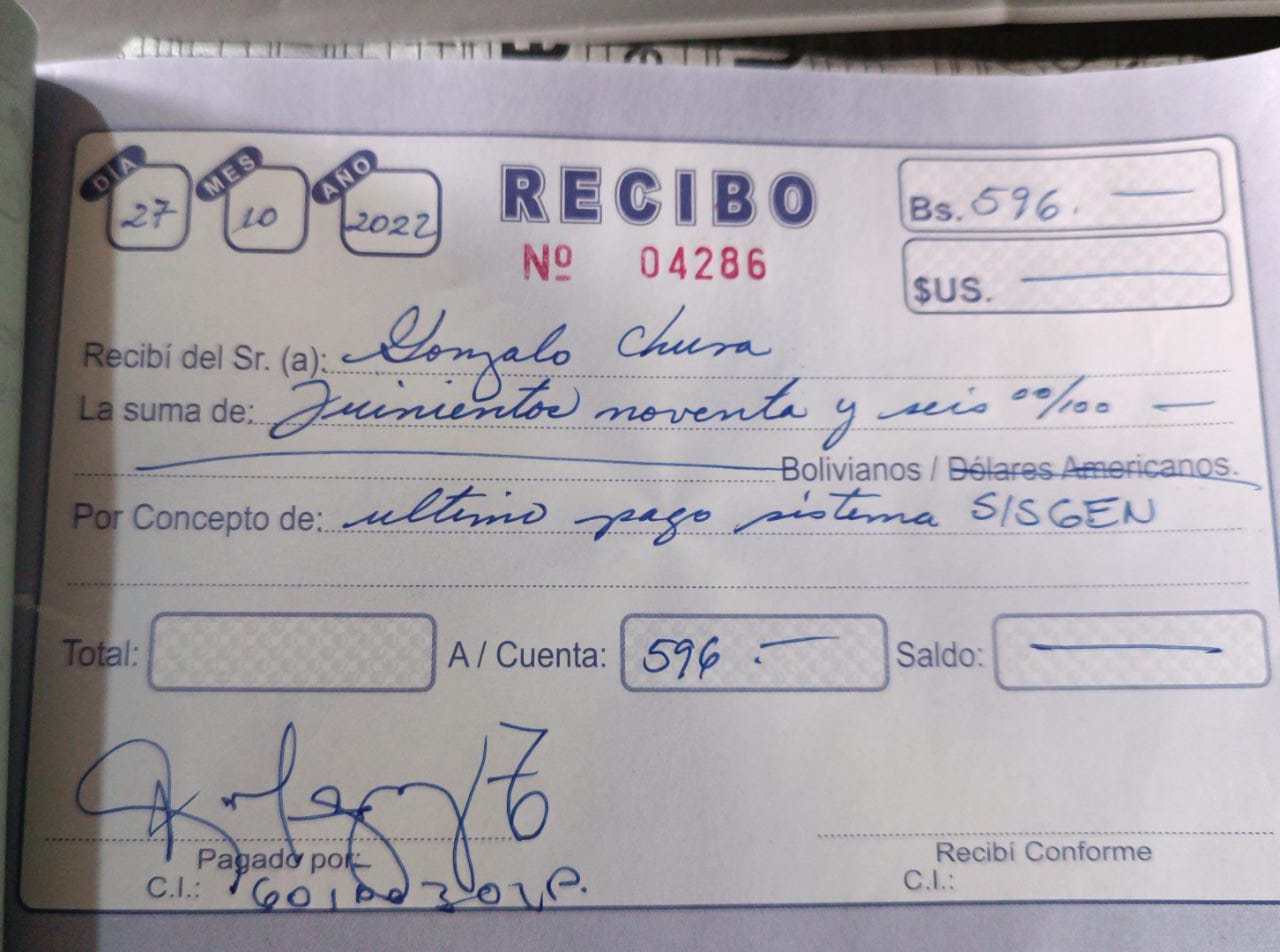 DIA 27 MES 10 AÑO 2022
RECIBO
Nº 04286
Bs. 596.
$US.
Recibí del Sr. (a): Gonzalo Chura
La suma de: Quinientos noventa y seis 00/100
Bolivianos / Dólares Americanos.
Por Concepto de: ultimo pago sistema SISGEN
Total: A / Cuenta: 596 .- Saldo:
Pagado por:
C.I.:
Recibí Conforme
C.I.: